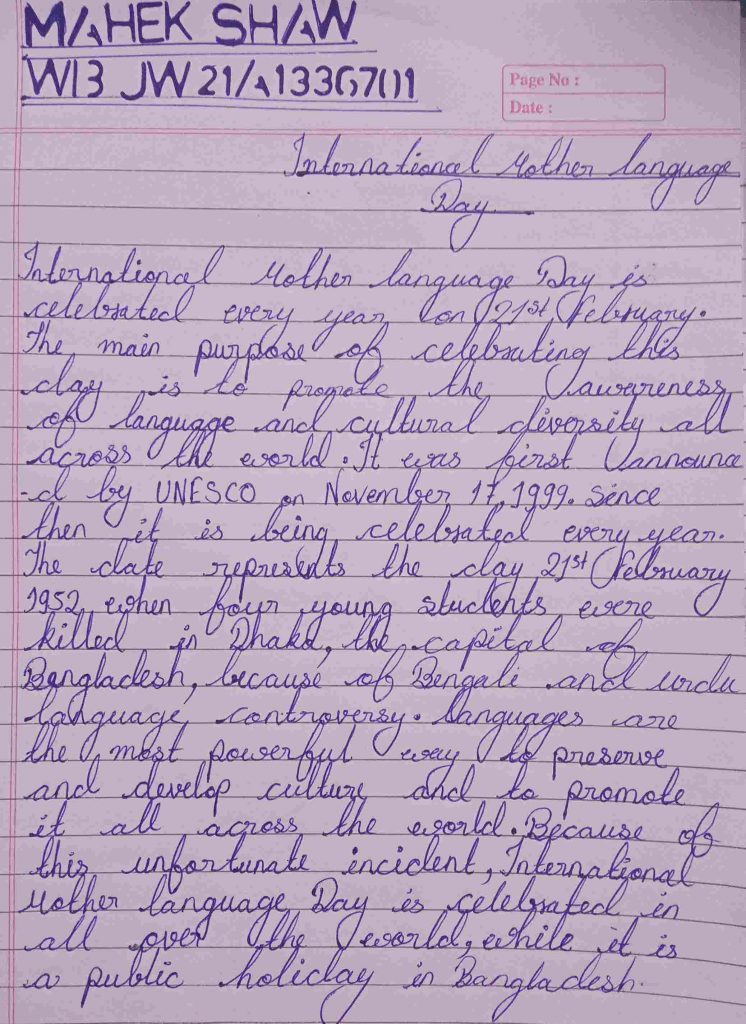 MAHEK SHAW
WB JW21/A1336701
Page No :
Date :
International Mother language
Day
International Mother language Day is
celebrated every year on 21st February.
The main purpose of celebrating this
day is to promote the awareness
of language and cultural diversity all
across the world. It was first announce
-d by UNESCO on November 17, 1999. Since
then it is being celebrated every year.
The date represents the day 21st February
1952, when four young students were
killed in Dhaka, the capital of
Bangladesh, because of Bengali and urdu
language controversy. languages are
the most powerful way to preserve
and develop culture and to promote
it all across the world. Because of
this unfortunate incident, International
Mother language Day is celebrated in
all over the world, while it is
a public holiday in Bangladesh.